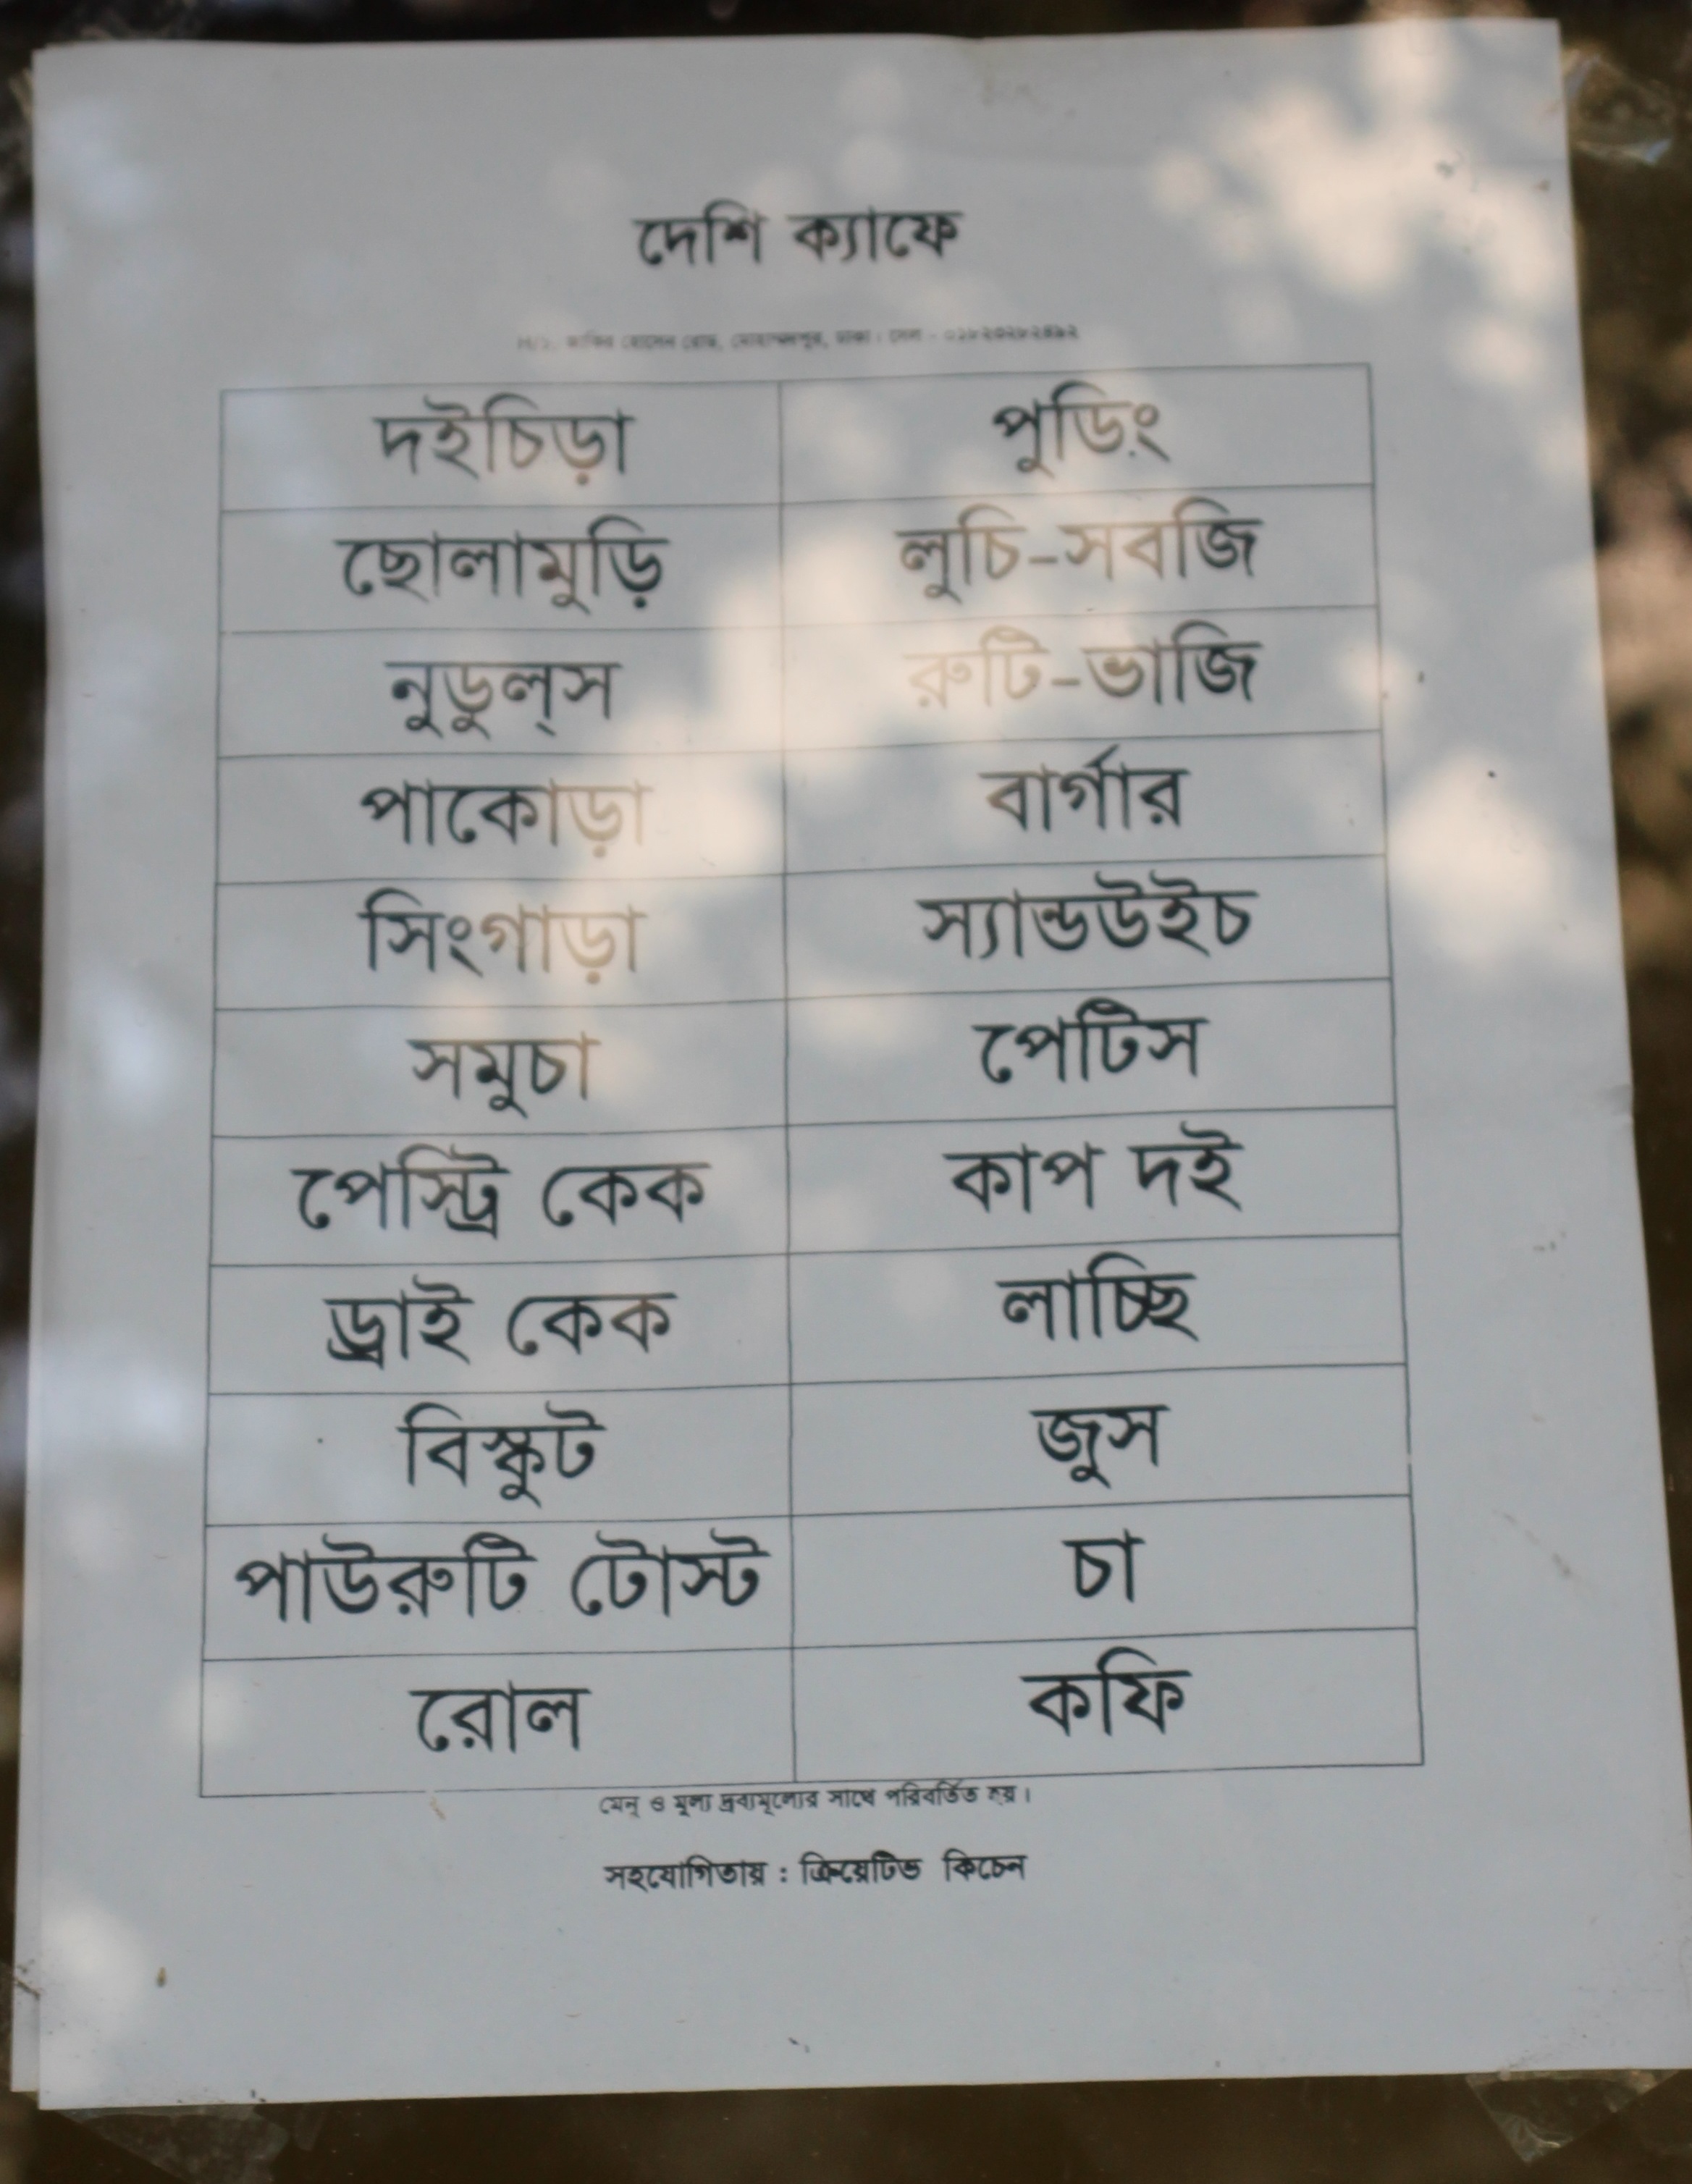 দেশি ক্যাফে
রোড, মোহাম্মদপুর, ঢাকা।
দইচিড়া পুডিং
ছোলামুড়ি লুচি-সবজি
নুডুল্স রুটি-ভাজি
পাকোড়া বার্গার
সিংগাড়া স্যান্ডউইচ
সমুচা পেটিস
পেস্ট্রি কেক কাপ দই
ড্রাই কেক লাচ্ছি
বিস্কুট জুস
পাউরুটি টোস্ট চা
রোল কফি
মেনু ও মূল্য দ্রব্যমূল্যের সাথে পরিবর্তিত হয়।
সহযোগিতায় : ক্রিয়েটিভ কিচেন